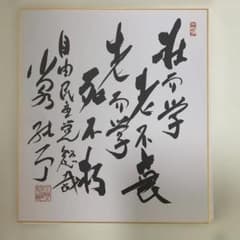 壮而学
老不衰
老而学
死不朽
自由民主党総裁
小泉純一郎